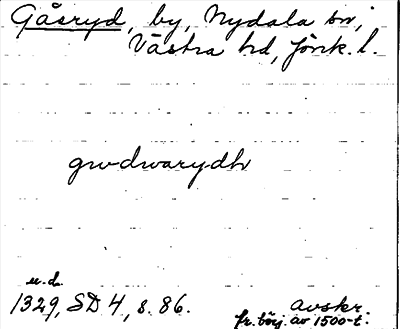 Gåsryd, by, Nydala sn,
Västra hd, Jönk. l.
gwdwarydh
u.d.
1329, SD 4, s. 86.
avskr.
fr. börj. av 1500-t.